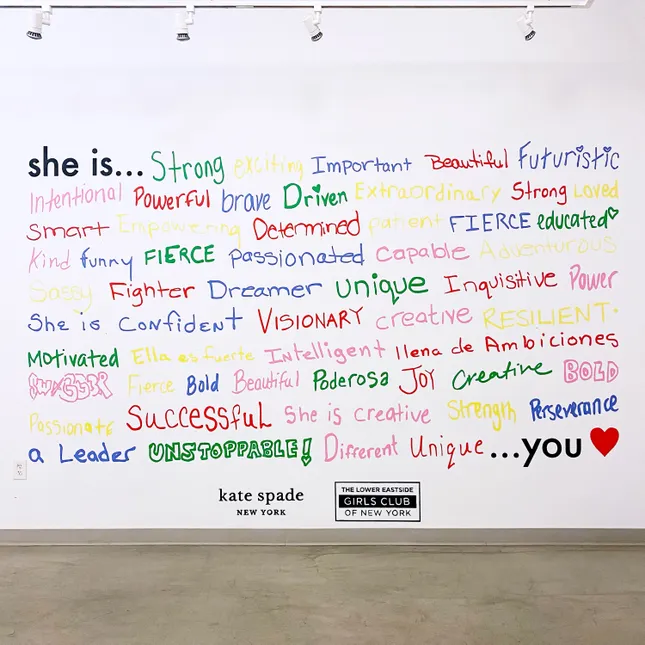 she is... Strong exciting Important Beautiful Futuristic
Intentional Powerful brave Driven Extraordinary Strong Loved
Smart Empowering Determined patient FIERCE educated
Kind funny FIERCE Passionated Capable Adventurous
Sassy Fighter Dreamer unique Inquisitive Power
She is Confident VISIONARY creative RESILIENT.
Motivated Ella es fuerte Intelligent llena de Ambiciones
Fierce Bold Beautiful Poderosa Joy Creative BOLD
Passionate Successful She is creative Strength Perseverance
a Leader UNSTOPPABLE! Different Unique ...you
kate spade
NEW YORK
THE LOWER EASTSIDE
GIRLS CLUB
OF NEW YORK